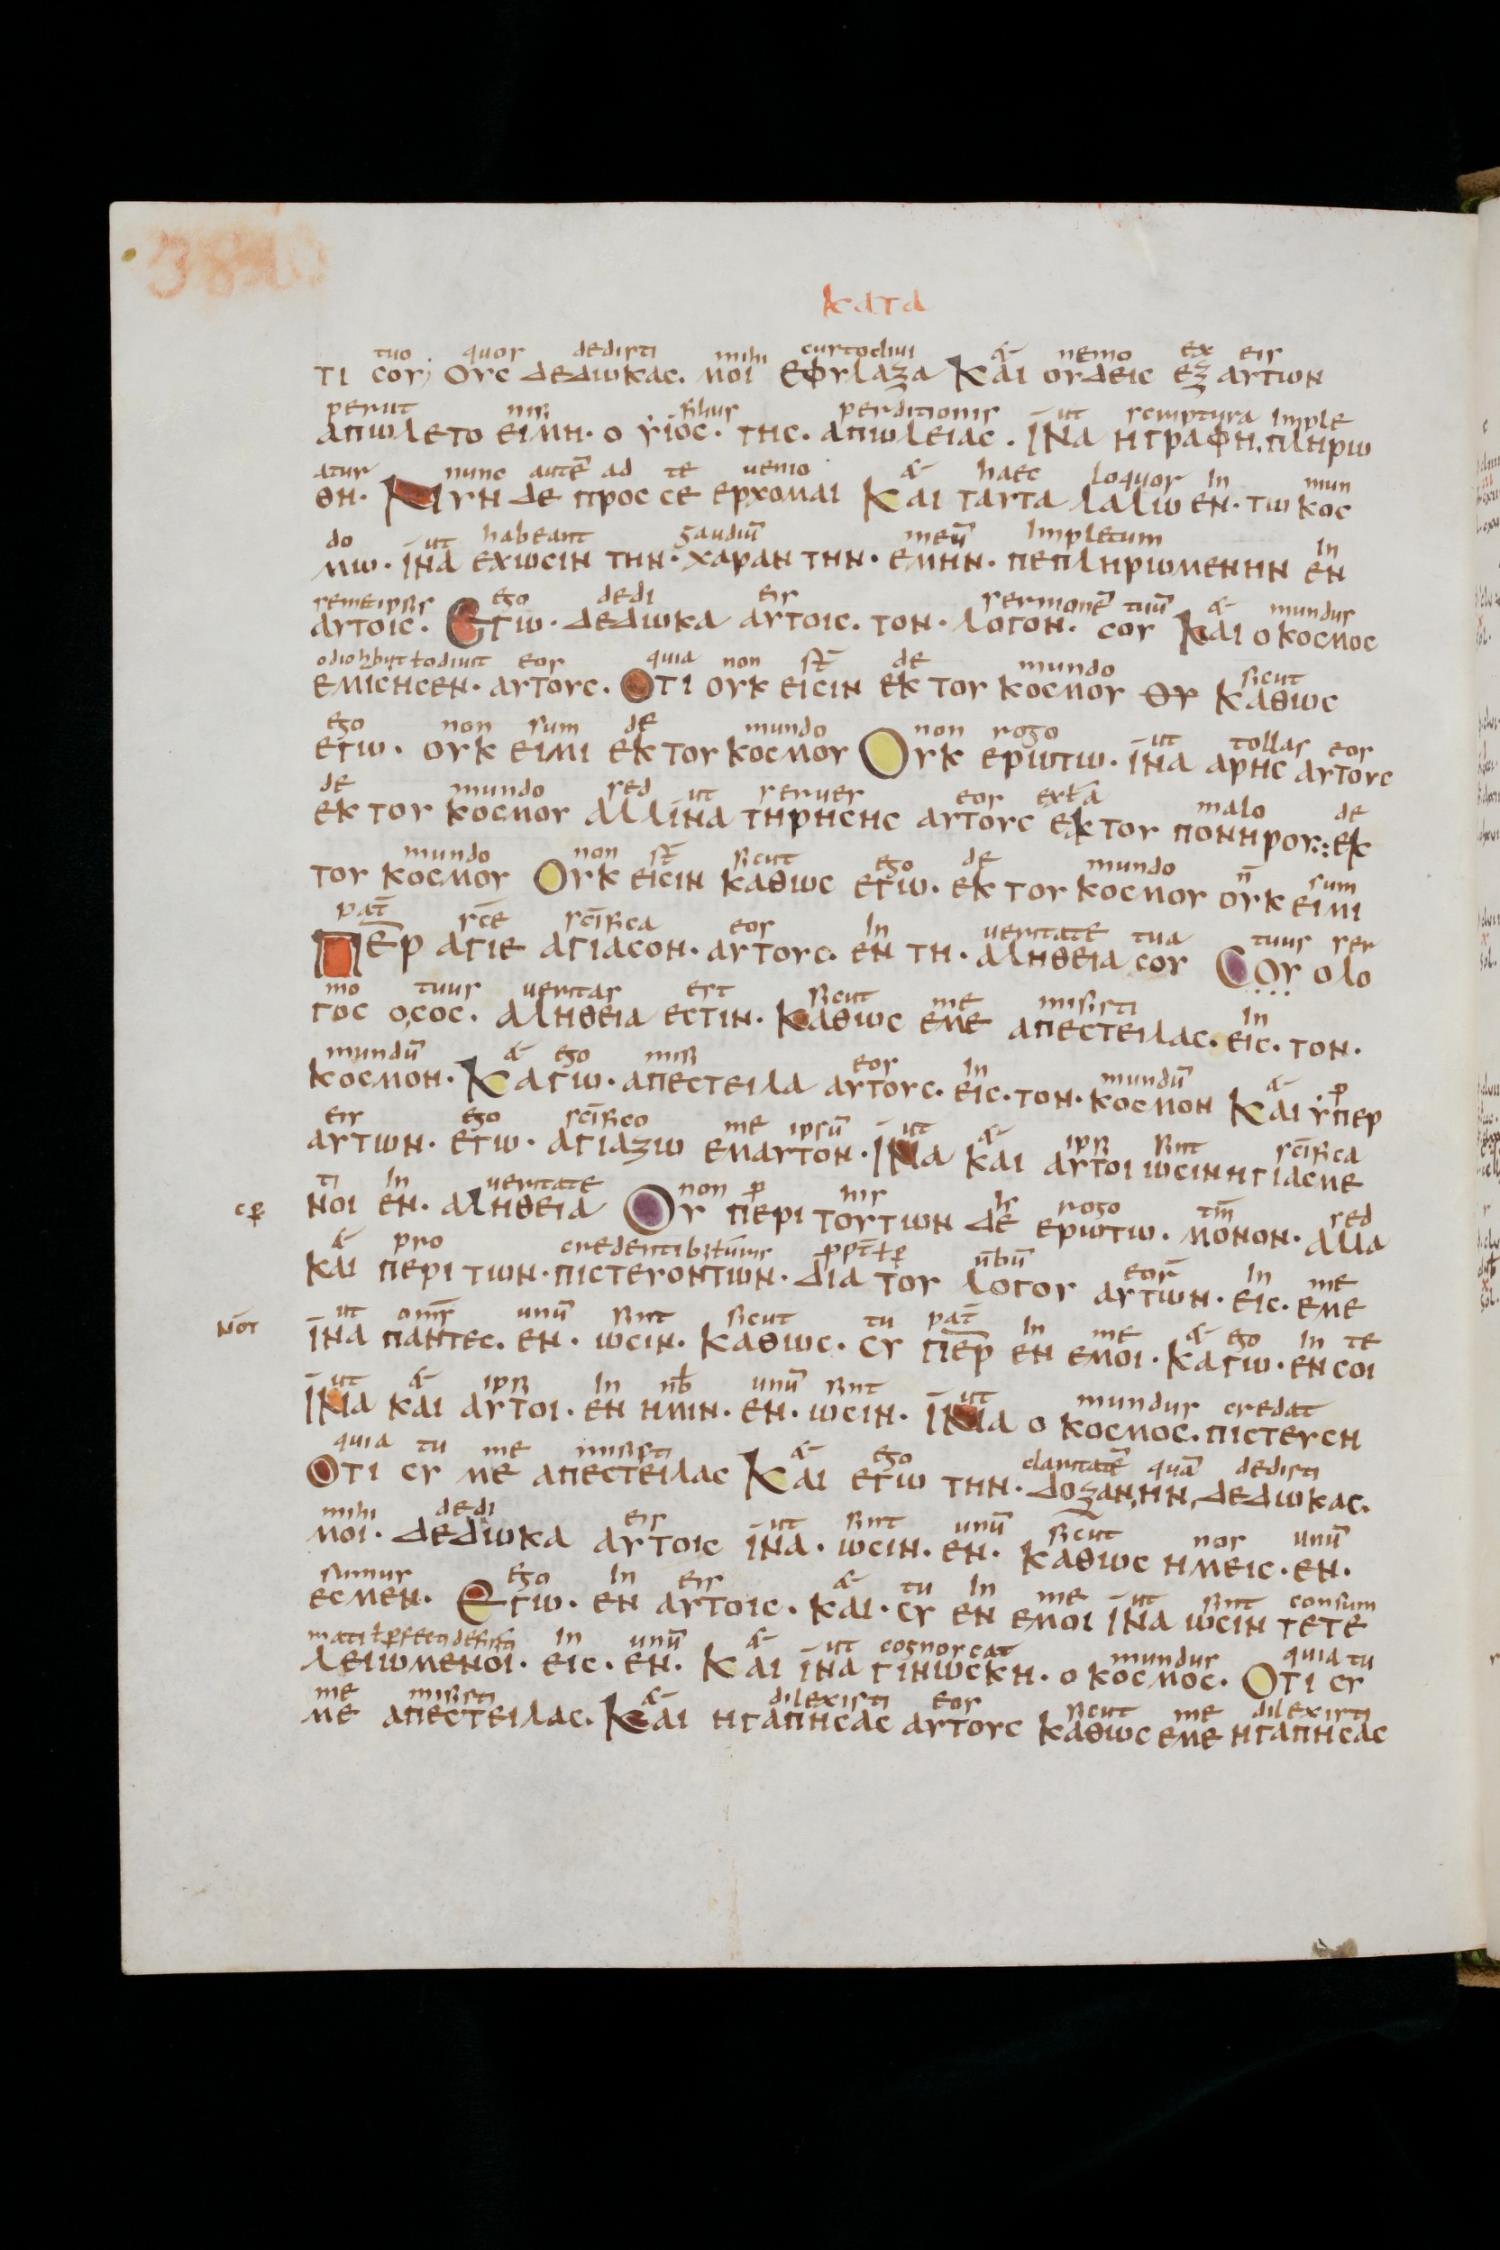 ΚΑΤΑ
tuo quos dedisti mihi custodiui & nemo ex eis
ΤΙ ϹΟΥ ΟΥϹ ΔΕΔΩΚΑϹ· ΜΟΙ ΕΦΥΛΑΞΑ ΚΑΙ ΟΥΔΕΙϹ ΕΞ ΑΥΤΩΝ
periit nisi filius perditionis ut scriptura imple
ΑΠΩΛΕΤΟ ΕΙΜΗ· Ο ΥΙΟϹ· ΤΗϹ· ΑΠΩΛΕΙΑϹ· ΙΝΑ ΗΓΡΑΦΗ· ΠΛΗΡΩ
atur nunc autē ad te uenio & haec loquor in mun
ΘΗ· ΝΥΝ ΔΕ ΠΡΟϹ ϹΕ ΕΡΧΟΜΑΙ ΚΑΙ ΤΑΥΤΑ ΛΑΛΩ ΕΝ· ΤΩ ΚΟϹ
do ut habeant gaudiū meū impletum in
ΜΩ· ΙΝΑ ΕΧΩϹΙΝ ΤΗΝ· ΧΑΡΑΝ ΤΗΝ· ΕΜΗΝ· ΠΕΠΛΗΡΩΜΕΝΗΝ ΕΝ
semeipsis ego dedi eis sermonē tuū & mundus
ΑΥΤΟΙϹ· ΕΓΩ· ΔΕΔΩΚΑ ΑΥΤΟΙϹ· ΤΟΝ· ΛΟΓΟΝ· ϹΟΥ ΚΑΙ Ο ΚΟϹΜΟϹ
eos quia non st̄ de mundo sicut
ΕΜΙϹΗϹΕΝ· ΑΥΤΟΥϹ· ΟΤΙ ΟΥΚ ΕΙϹΙΝ ΕΚ ΤΟΥ ΚΟϹΜΟΥ ΘΥ ΚΑΘΩϹ
ego non sum de mundo non rogo ut tollas eos
ΕΓΩ· ΟΥΚ ΕΙΜΙ ΕΚ ΤΟΥ ΚΟϹΜΟΥ ΟΥΚ ΕΡΩΤΩ· ΙΝΑ ΑΡΗϹ ΑΥΤΟΥϹ
de mundo sed ut serues eos ext̄a malo de
ΕΚ ΤΟΥ ΚΟϹΜΟΥ ΑΛΛΙΝΑ ΤΗΡΗϹΗϹ ΑΥΤΟΥϹ ΕΚ ΤΟΥ ΠΟΝΗΡΟΥ:· ΕΚ
mundo non st̄ sicut ego de mundo n̄ sum
ΤΟΥ ΚΟϹΜΟΥ ΟΥΚ ΕΙϹΙΝ ΚΑΘΩϹ ΕΓΩ· ΕΚ ΤΟΥ ΚΟϹΜΟΥ ΟΥΚ ΕΙΜΙ
pat̄ sc̄e sc̄ifica eos in ueritate tua tuus ser
ΠΕΡ ΑΓΙΕ ΑΓΙΑϹΟΝ· ΑΥΤΟΥϹ· ΕΝ ΤΗ· ΑΛΗΘΕΙΑ ϹΟΥ ϹΟΥ ΟΛΟ
mo tuus ueritas est sicut me misisti in
ΓΟϹ ΟϹΟϹ· ΑΛΗΘΕΙΑ ΕϹΤΙΝ· ΚΑΘΩϹ ΕΜΕ ΑΠΕϹΤΕΙΛΑϹ· ΕΙϹ· ΤΟΝ·
mundū & ego misi eos in mundū & p̄
ΚΟϹΜΟΝ· ΚΑΓΩ· ΑΠΕϹΤΕΙΛΑ ΑΥΤΟΥϹ· ΕΙϹ· ΤΟΝ· ΚΟϹΜΟΝ ΚΑΙ ΥΠΕΡ
eis ego sc̄ifico me ipsū ut & ipsi sint sc̄ifica
ΑΥΤΩΝ· ΕΓΩ· ΑΓΙΑΖΩ ΕΜΑΥΤΟΝ· ΙΝΑ ΚΑΙ ΑΥΤΟΙ ΩϹΙΝ ΗΓΙΑϹΜΕ
ti in ueritate non p̄ his rogo tm̄ sed
ΝΟΙ ΕΝ· ΑΛΗΘΕΙΑ ΟΥ ΠΕΡΙ ΤΟΥΤΩΝ ΔΕ ΕΡΩΤΩ· ΜΟΝΟΝ· ΑΛΛΑ
& pro uerbū eoꝝ in me
ΚΑΙ ΠΕΡΙ ΤΩΝ· ΠΙϹΤΕΥΟΝΤΩΝ· ΔΙΑ ΤΟΥ ΛΟΓΟΥ ΑΥΤΩΝ· ΕΙϹ· ΕΜΕ
ut om̄s unū sint sicut tu pat̄ in me & ego in te
ΙΝΑ ΠΑΝΤΕϹ· ΕΝ· ΩϹΙΝ· ΚΑΘΩϹ· ϹΥ ΠΕΡ ΕΝ ΕΜΟΙ· ΚΑΓΩ· ΕΝ ϹΟΙ
ut & ipsi in nb̄ unū sint ut mundus credat
ΙΝΑ ΚΑΙ ΑΥΤΟΙ· ΕΝ ΗΜΙΝ· ΕΝ· ΩϹΙΝ· ΙΝΑ Ο ΚΟϹΜΟϹ· ΠΙϹΤΕΥϹΗ
quia tu me misisti & ego claritatē quā dedisti
ΟΤΙ ϹΥ ΜΕ ΑΠΕϹΤΕΙΛΑϹ ΚΑΙ ΕΓΩ ΤΗΝ· ΔΟΞΑΝ, ΗΝ, ΔΕΔΩΚΑϹ·
mihi dedi eis ut sint unū sicut nos unū
ΜΟΙ· ΔΕΔΩΚΑ ΑΥΤΟΙϹ ΙΝΑ· ΩϹΙΝ· ΕΝ· ΚΑΘΩϹ ΗΜΕΙϹ· ΕΝ·
sumus ego in eis & tu in me ut sint consum
ΕϹΜΕΝ· ΕΓΩ· ΕΝ ΑΥΤΟΙϹ· ΚΑΙ· ϹΥ ΕΝ ΕΜΟΙ ΙΝΑ ΩϹΙΝ ΤΕΤΕ
mati in unū & ut cognoscat mundus quia tu
ΛΕΙΩΜΕΝΟΙ· ΕΙϹ· ΕΝ· ΚΑΙ ΙΝΑ ΓΙΝΩϹΚΗ· Ο ΚΟϹΜΟϹ· ΟΤΙ ϹΥ
me misisti & dilexisti eos sicut me dilexisti
ΜΕ ΑΠΕϹΤΕΙΛΑϹ· ΚΑΙ ΗΓΑΠΗϹΑϹ ΑΥΤΟΥϹ ΚΑΘΩϹ ΕΜΕ ΗΓΑΠΗϹΑϹ